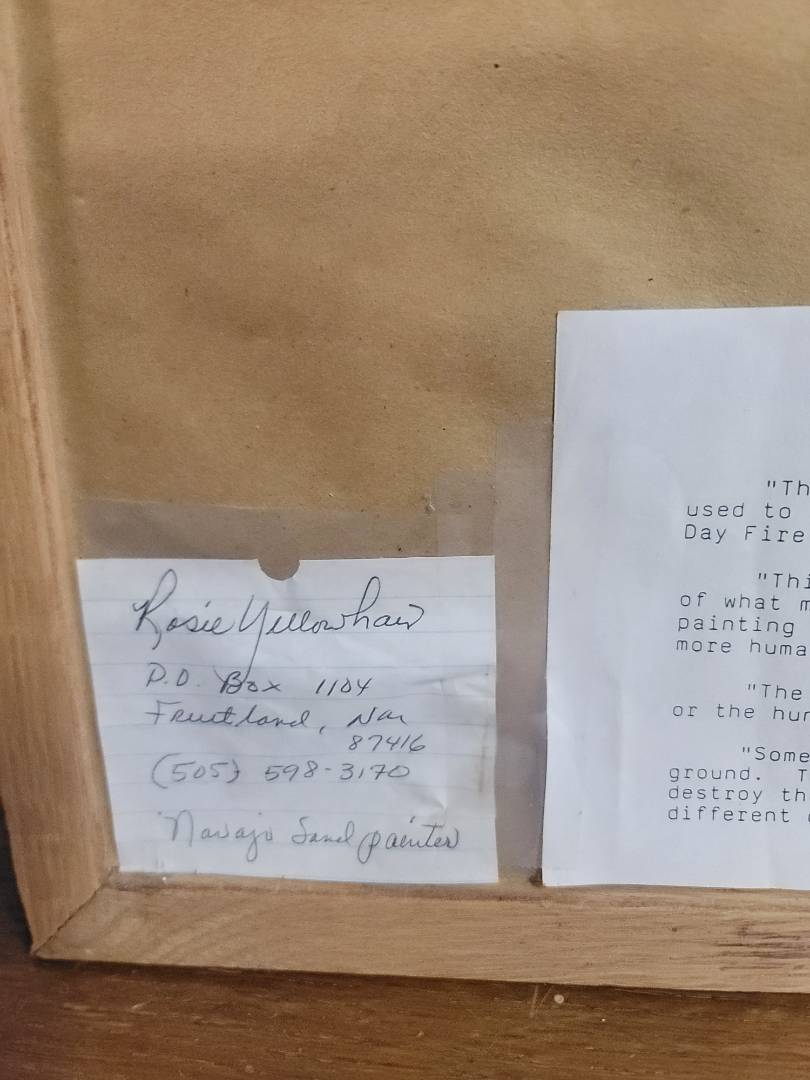 Rosie Yellowhair
P.O. Box 1104
Fruitland, NM
87416
(505) 598-3170
Navajo Sand painter
"Th
used to
Day Fire
"Thi
of what m
painting
more huma
"The
or the hum
"Some
ground. T
destroy th
different